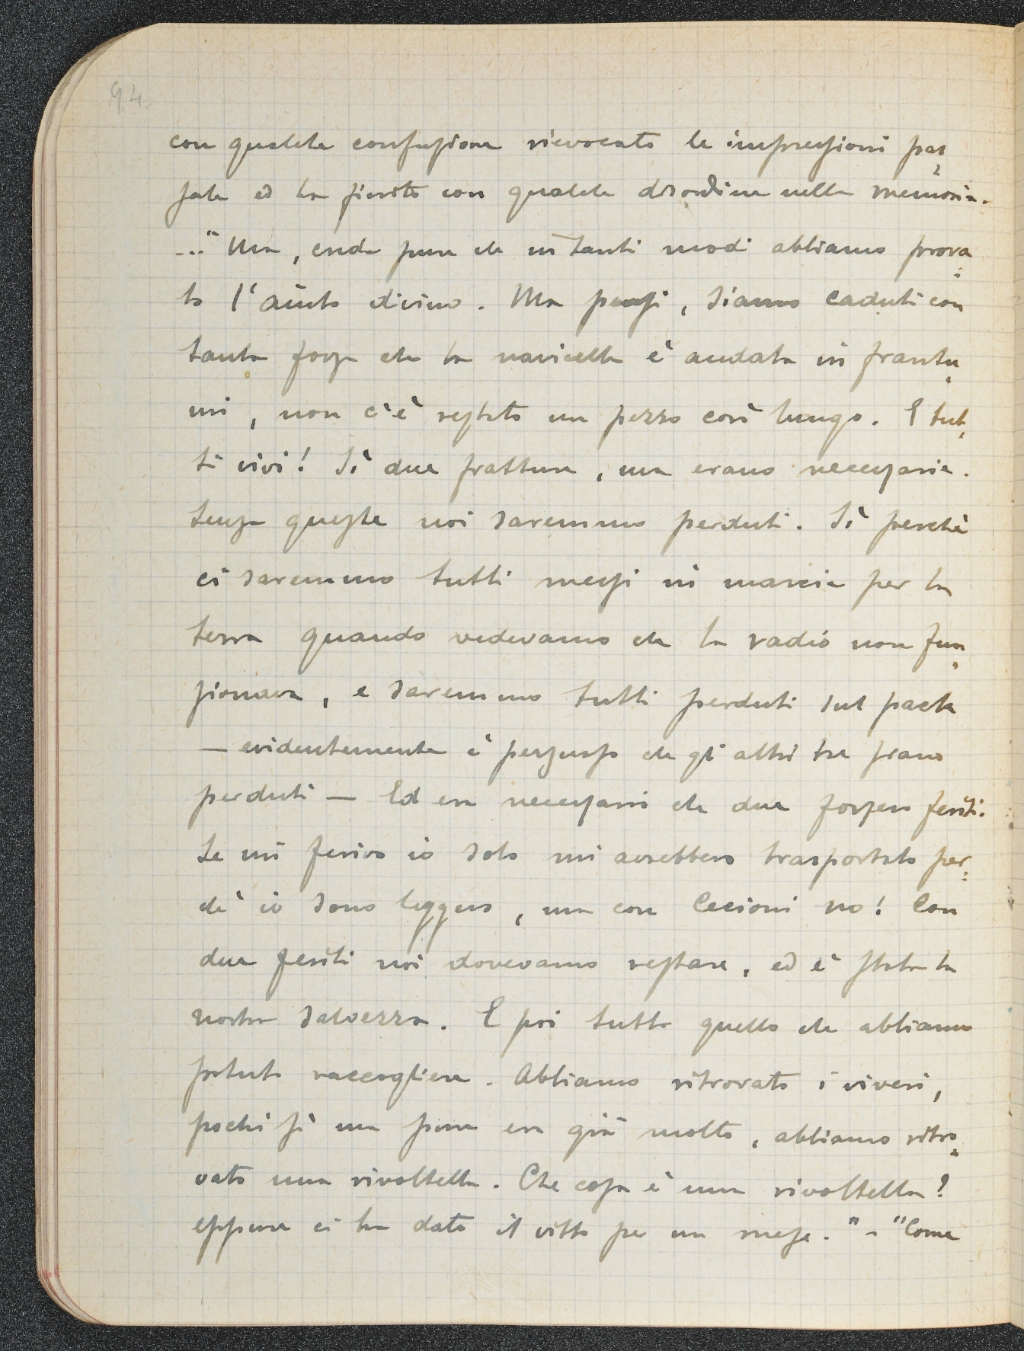 94.
con qualche confusione rievocato le impressioni pas
sate ed ha finito con qualche disordine nella memoria.
..." Ma, creda pure che in tanti modi abbiamo prova
to l'aiuto divino. Ma pensi, siamo caduti con
tanta forza che la navicella è andata in frantu
mi, non c'è restato un pezzo così lungo. E tut
ti vivi! Sì due fratture, ma erano necessarie.
Senza queste noi saremmo perduti. Sì perchè
ci saremmo tutti messi in marcia per la
terra quando vedevamo che la radio non fun
zionava, e saremmo tutti perduti sul pack
— evidentemente è persuaso che gli altri tre siano
perduti — Ed era necessario che due fossero feriti.
Se mi ferivo io solo mi avrebbero trasportato per
chè io sono leggero, ma con Cecioni no! Con
due feriti noi dovevamo restare, ed è stata la
nostra salvezza. E poi tutto quello che abbiamo
potuto raccogliere. Abbiamo ritrovato i viveri,
pochi sì ma pure era già molto, abbiamo ritro
vato una rivoltella. Che cosa è una rivoltella?
eppure ci ha dato il vitto per un mese." - "Come